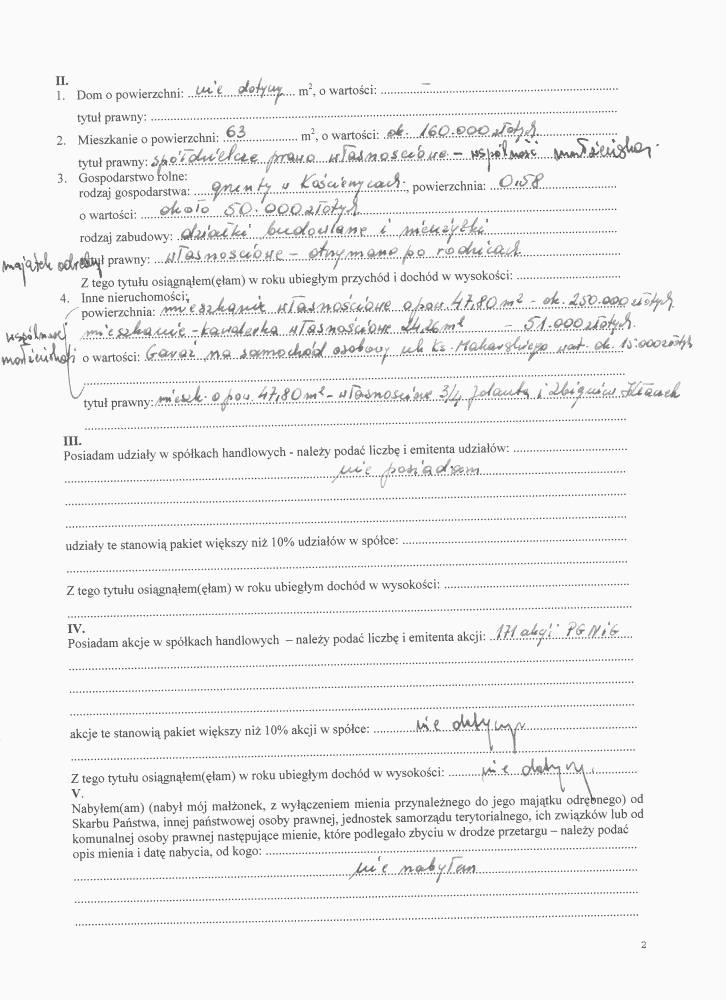 II.
1. Dom o powierzchni: nie dotyczy m², o wartości: –
tytuł prawny:
2. Mieszkanie o powierzchni: 63 m², o wartości: ok. 160.000 złotych
tytuł prawny: spółdzielcze prawo własnościowe – wspólność małżeńska.
3. Gospodarstwo rolne:
rodzaj gospodarstwa: grunty w Kościenicach, powierzchnia: 0,58
o wartości: około 50.000 złotych
rodzaj zabudowy: działki budowlane i nieużytki
majątek odrębny tytuł prawny: własnościowe – otrzymane po rodzicach
Z tego tytułu osiągnąłem(ęłam) w roku ubiegłym przychód i dochód w wysokości:
4. Inne nieruchomości:
powierzchnia: mieszkanie własnościowe o pow. 47,80 m² - ok. 250.000 złotych
wspólność mieszkanie - kawalerka własnościowe 24,26 m² – 51.000 złotych.
małżeńska o wartości: Garaż na samochód osobowy ul. Ks. Makarskiego wart. ok. 15.000 złotych
tytuł prawny: mieszk. o pow. 47,80 m² - własnościowe 3/4 Jolanta i Zbigniew
III.
Posiadam udziały w spółkach handlowych - należy podać liczbę i emitenta udziałów:
nie posiadam
udziały te stanowią pakiet większy niż 10% udziałów w spółce:
Z tego tytułu osiągnąłem(ęłam) w roku ubiegłym dochód w wysokości:
IV.
Posiadam akcje w spółkach handlowych – należy podać liczbę i emitenta akcji: 171 akcji PGNiG
akcje te stanowią pakiet większy niż 10% akcji w spółce: nie dotyczy
Z tego tytułu osiągnąłem(ęłam) w roku ubiegłym dochód w wysokości: nie dotyczy.
V.
Nabyłem(am) (nabył mój małżonek, z wyłączeniem mienia przynależnego do jego majątku odrębnego) od
Skarbu Państwa, innej państwowej osoby prawnej, jednostek samorządu terytorialnego, ich związków lub od
komunalnej osoby prawnej następujące mienie, które podlegało zbyciu w drodze przetargu – należy podać
opis mienia i datę nabycia, od kogo:
nie nabyłam
2